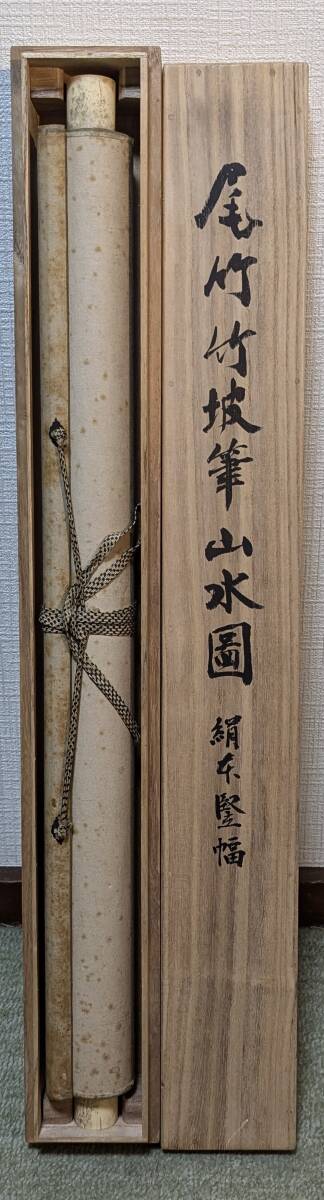 尾竹竹坡筆山水圖
絹本竪幅